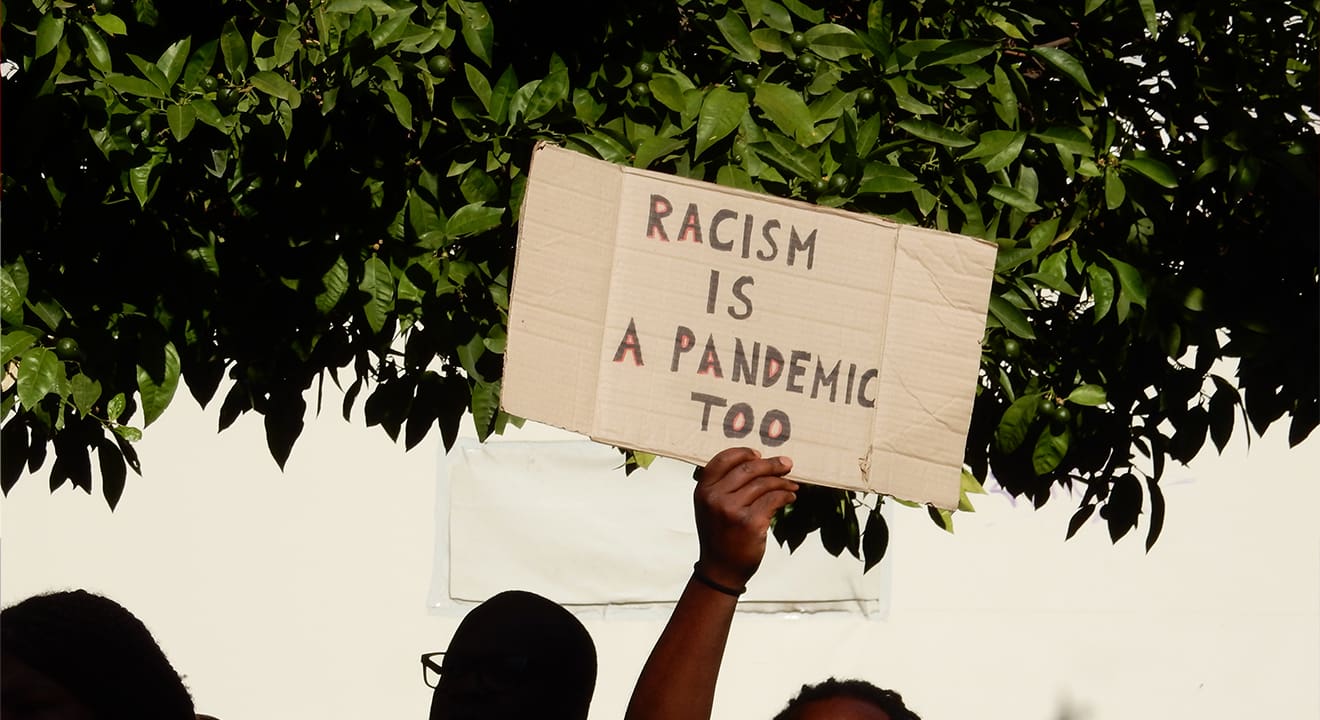 RACISM
IS
A PANDEMIC
TOO